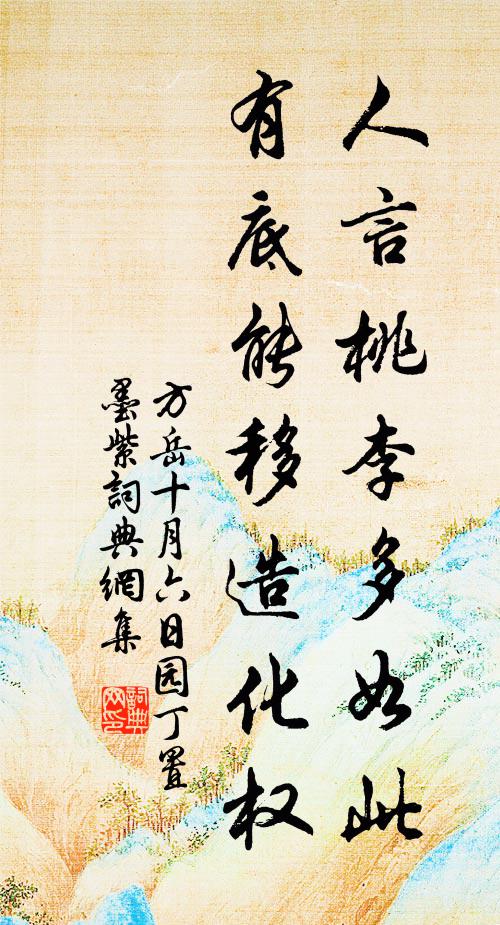 人言桃李多如此
有底能移造化权
方岳十月六日园丁置
墨紫詞典網集
詞典網印